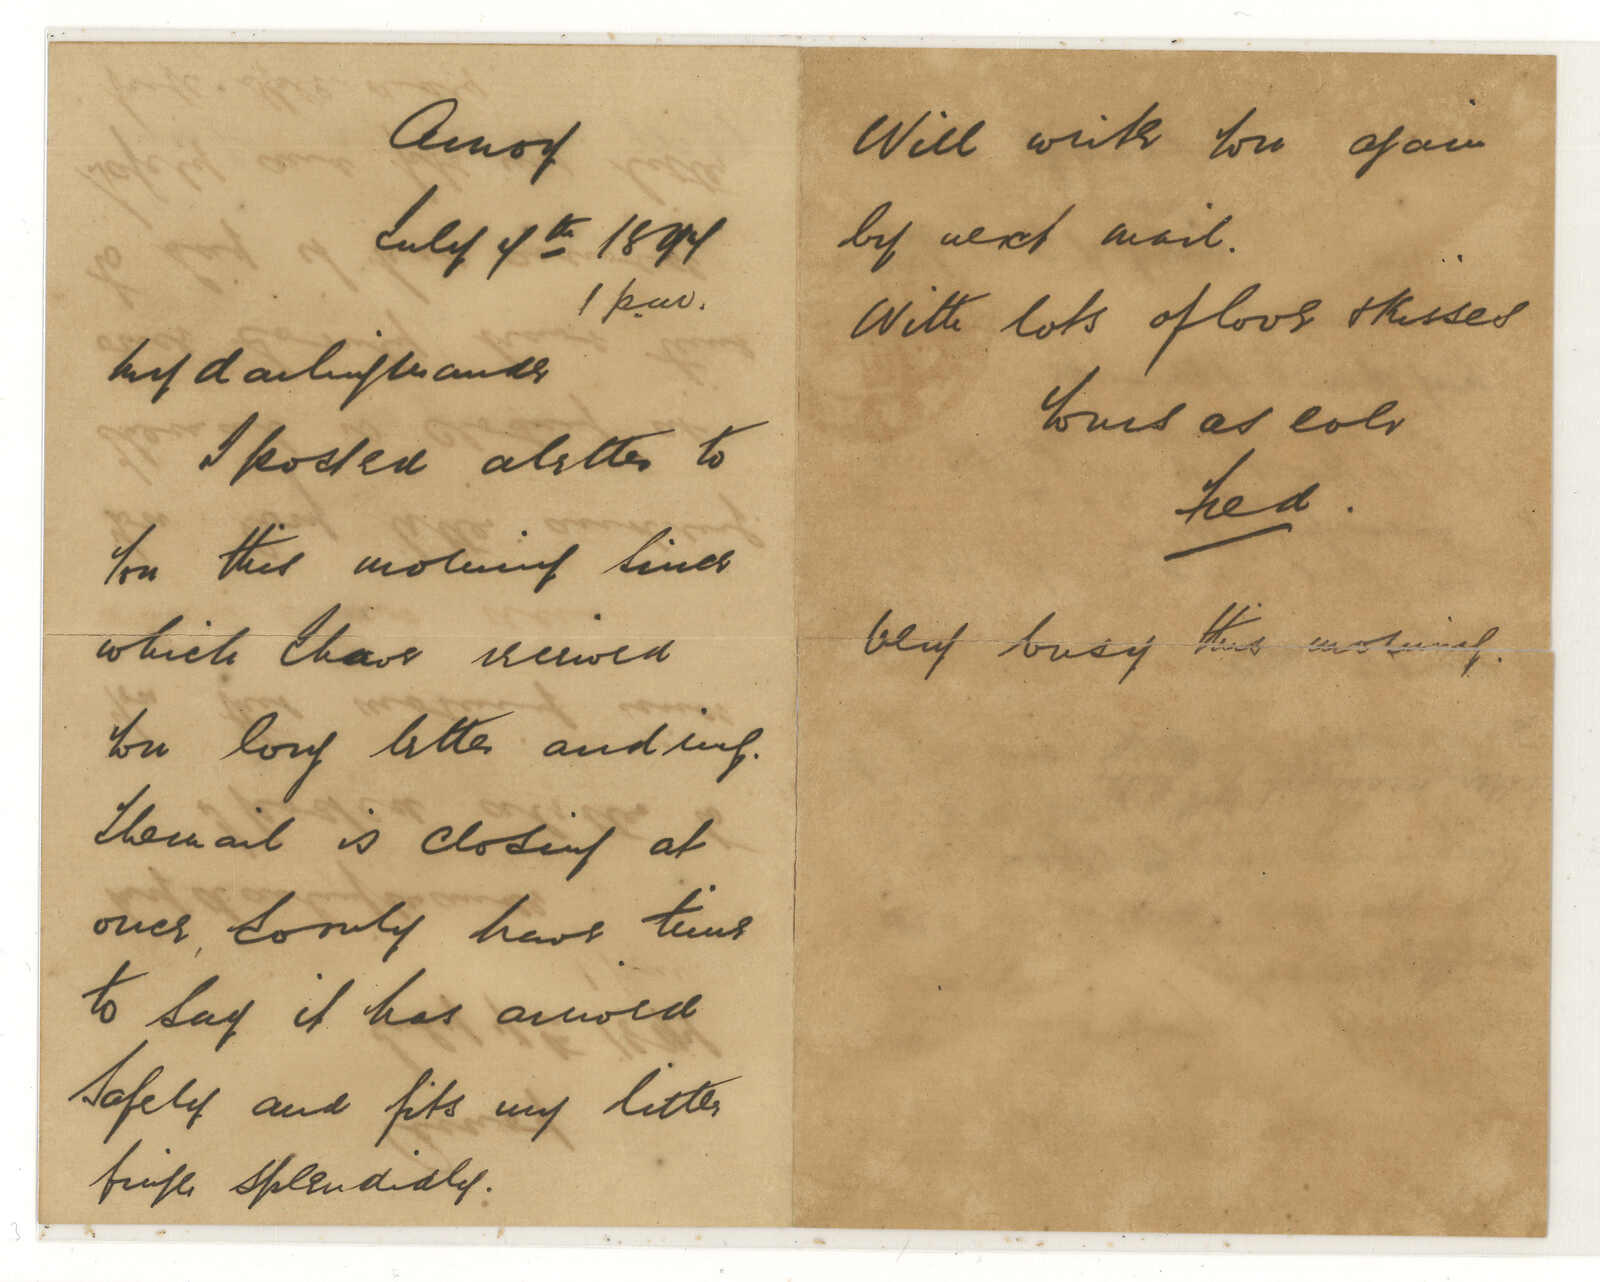 Amoy
July 4th 1894
1 p.m.
My darling Maude
I posted a letter to
you this morning since
which I have recived
you long letter and ring.
The mail is closing at
once, so only have time
to say it has arrived
safely and fits my little
finger splendidly.
Will write you again
by next mail.
With lots of love & kisses
Yours as ever
Fred.
Very busy this morning.